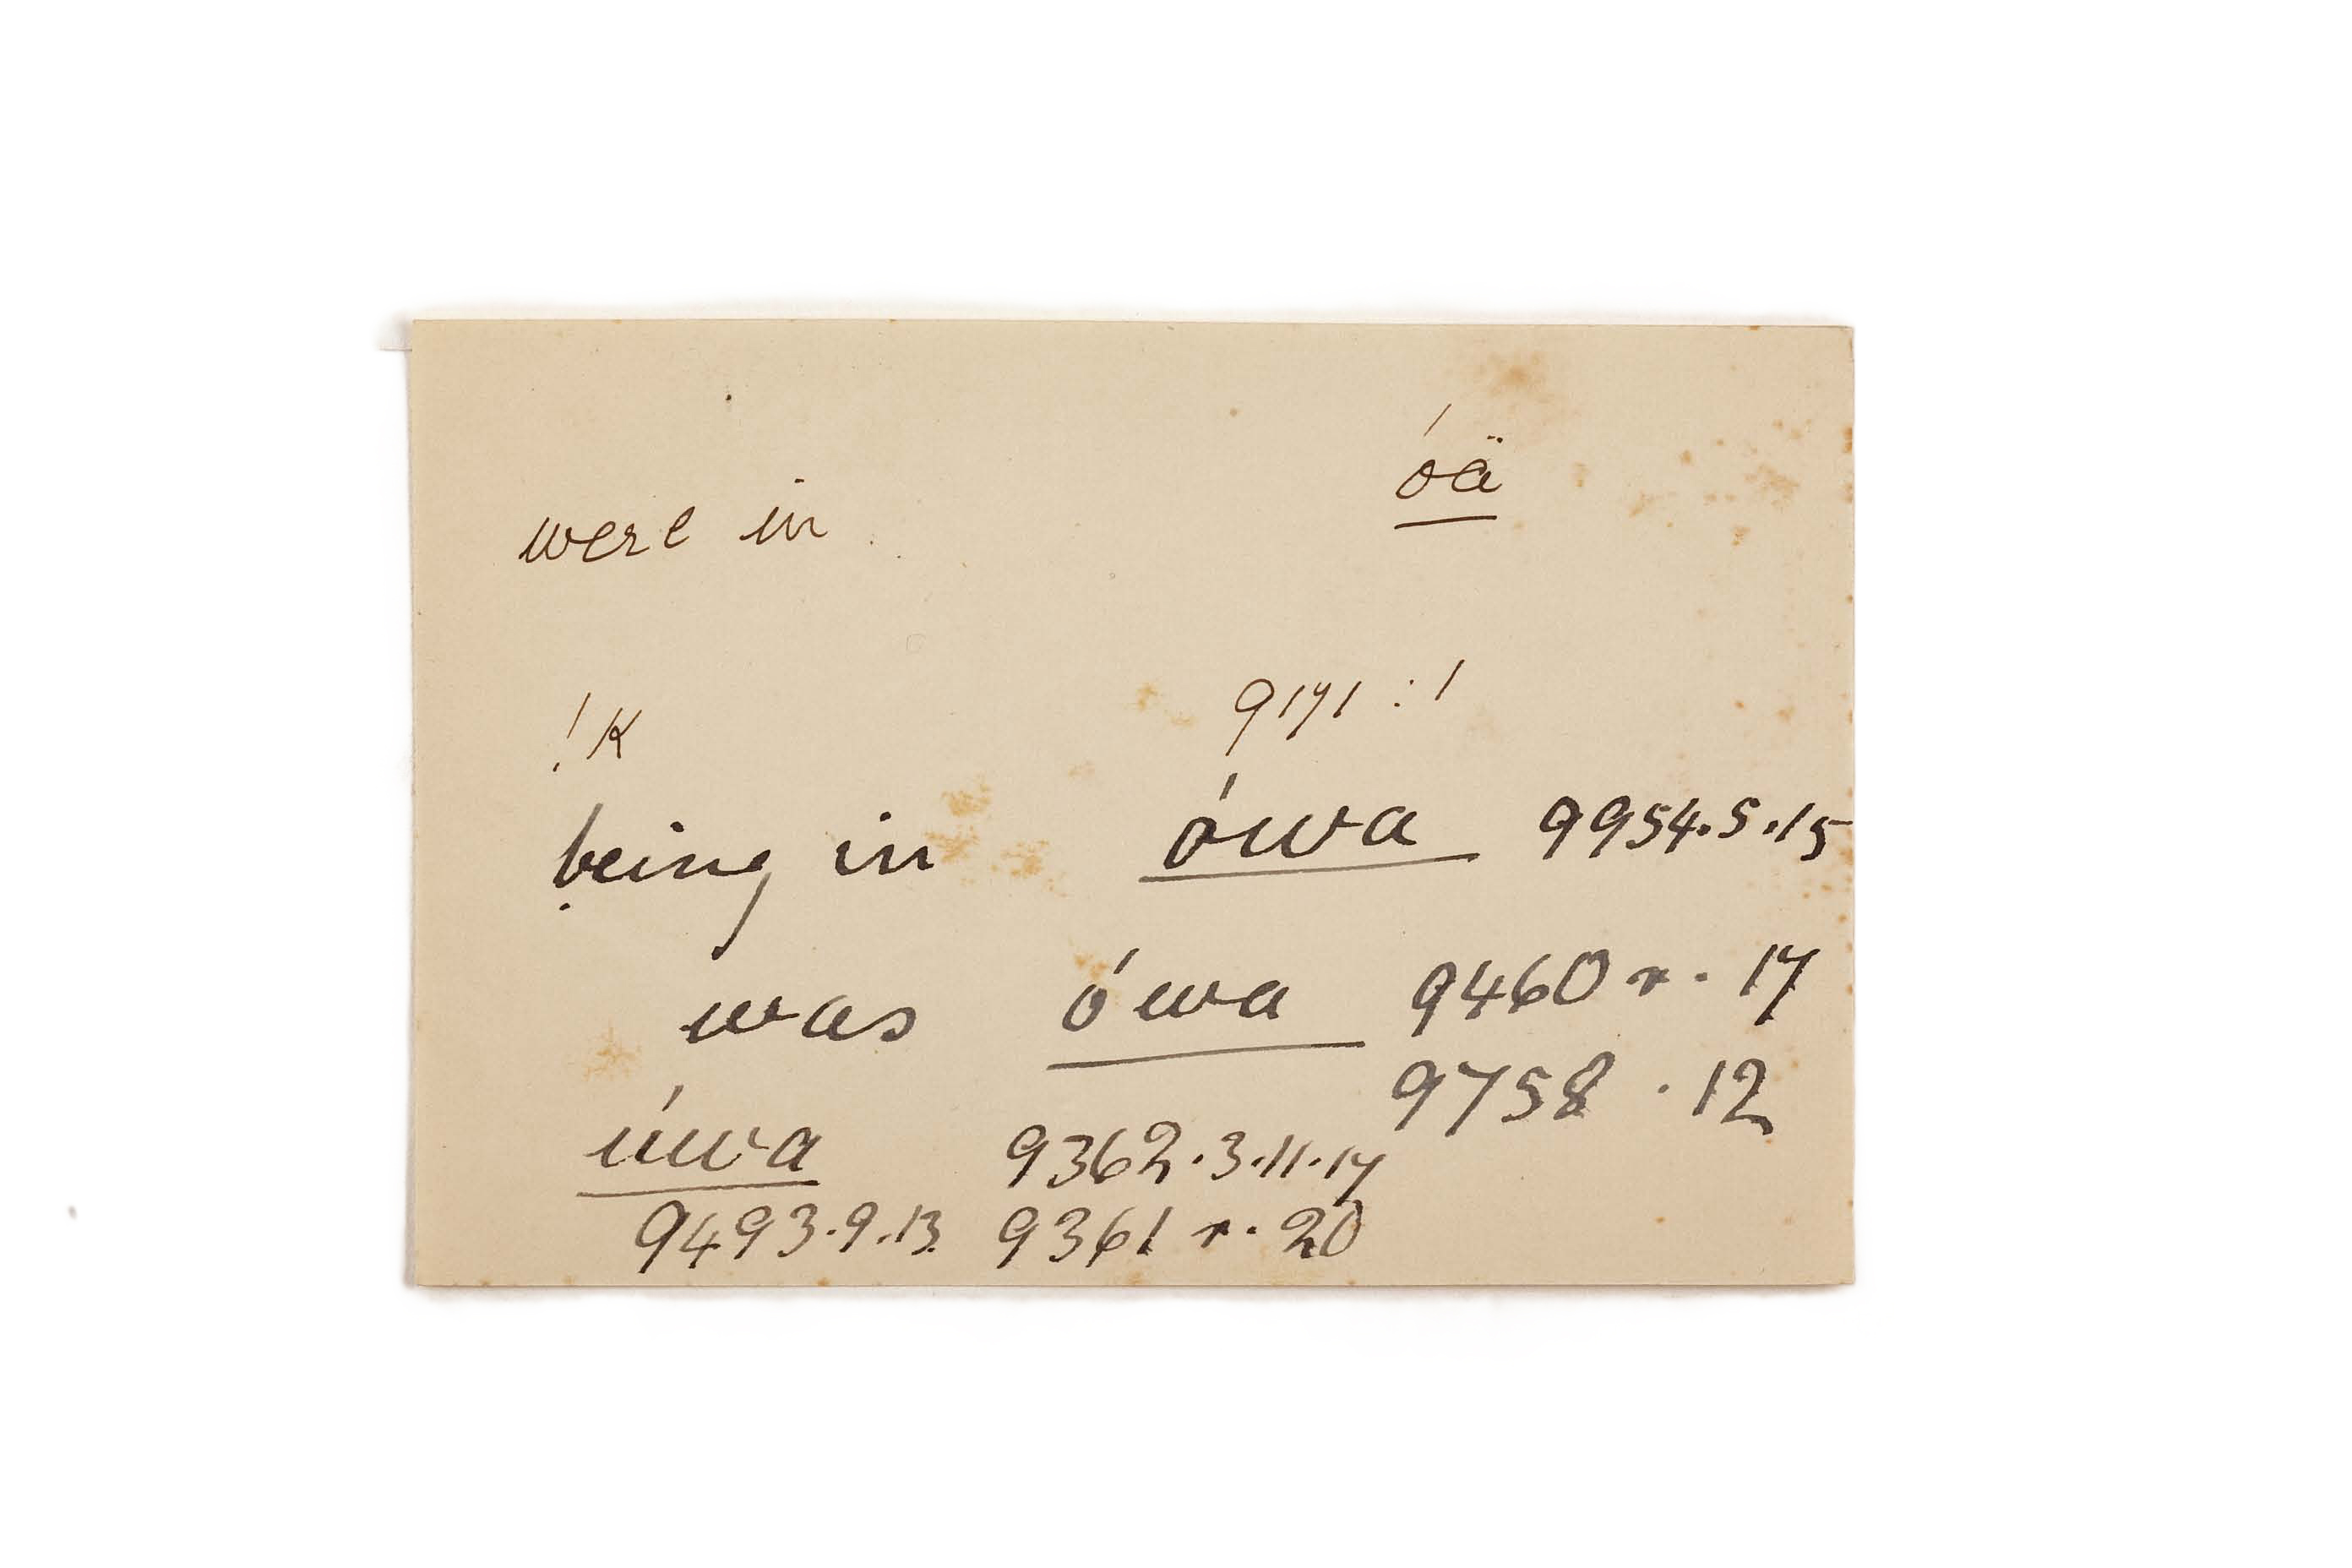 óä
were in
!K 9171 : 1
being in ówa 9954.5.15
was ówa 9460 r. 17
9758 . 12
úwa 9362.3.11.17
9493.9.13 9361 r. 20